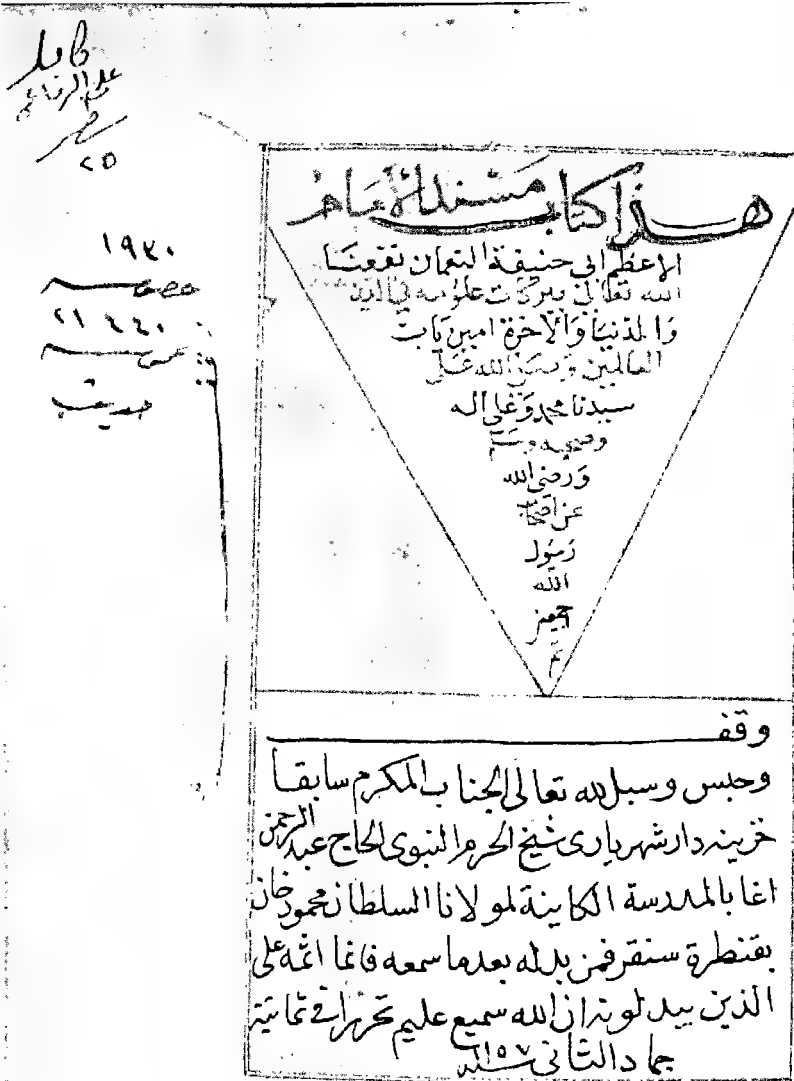 هذا كتاب مسند الامام
الاعظم ابى حنيفة النعمان نفعنا
الله تعالى ببركات علومه في الدين
والدنيا والاخرة امين يارب
العالمين وصلى الله على
سيدنا محمد وعلى اله
وصحبه وسلم
ورضى الله
عن اصحاب
رسول
الله
اجمعين
تم
وقف
وحبس وسبل لله تعالى الجناب المكرم سابقا
خزينه دار شهريارى شيخ الحرم النبوى الحاج عبد الرحمن
اغا بالمدرسة الكاينة لمولانا السلطان محمود خان
بقنطرة سنقر فمن بدله بعدما سمعه فانما اثمه على
الذين يبدلونه ان الله سميع عليم تحريرا فى ثمانية
جماد الثانى سنة ١١٥٧
٢٥
خصوصية
عمومية